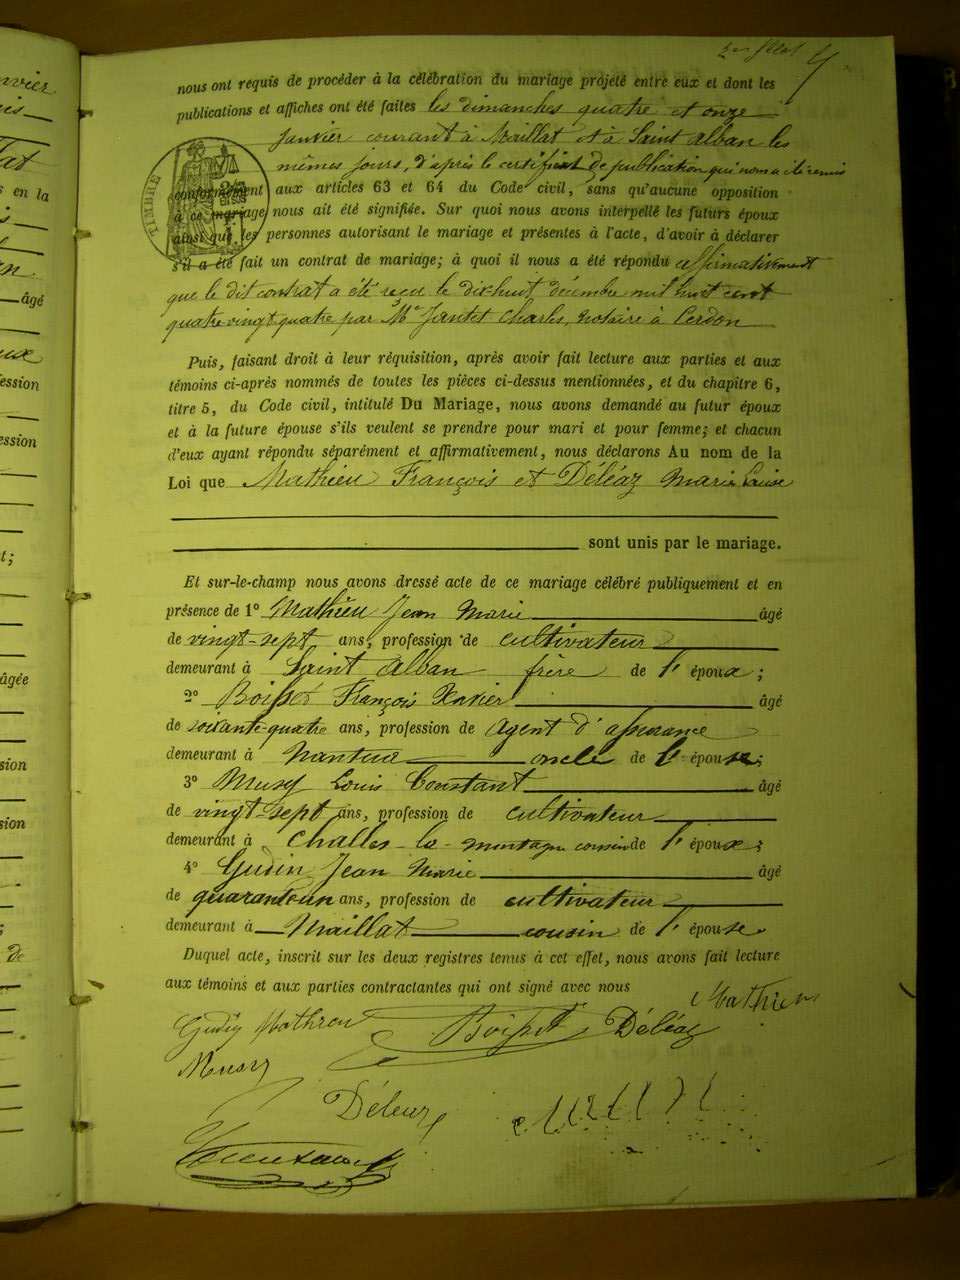 nous ont requis de procéder à la célébration du mariage projeté entre eux et dont les
publications et affiches ont été faites les dimanches quatre et onze
Janvier courant à Maillat et à Saint Alban les
mêmes jours, d'après le certificat de publication qui nous a été remis
conformément aux articles 63 et 64 du Code civil, sans qu'aucune opposition
à ce mariage nous ait été signifiée. Sur quoi nous avons interpellé les futurs époux
ainsi que les personnes autorisant le mariage et présentes à l'acte, d'avoir à déclarer
s'il a été fait un contrat de mariage; à quoi il nous a été répondu affirmativement
que le dit contrat a été reçu le dix huit décembre mil huit cent
quatre vingt quatre par Me Jantet Charles, notaire à Cerdon
TIMBRE
Puis, faisant droit à leur réquisition, après avoir fait lecture aux parties et aux
témoins ci-après nommés de toutes les pièces ci-dessus mentionnées, et du chapitre 6,
titre 5, du Code civil, intitulé Du Mariage, nous avons demandé au futur époux
et à la future épouse s'ils veulent se prendre pour mari et pour femme; et chacun
d'eux ayant répondu séparément et affirmativement, nous déclarons Au nom de la
Loi que Mathieu François et Déléaz Marie Louise
sont unis par le mariage.
Et sur-le-champ nous avons dressé acte de ce mariage célébré publiquement et en
présence de 1° Mathieu Jean Marie âgé
de vingt-sept ans, profession de cultivateur
demeurant à Saint Alban frère de l'époux;
2° Boisset François Xavier âgé
de soixante-quatre ans, profession de agent d'assurance
demeurant à Nantua oncle de l'épouse;
3° Musy Louis Constant âgé
de vingt-sept ans, profession de cultivateur
demeurant à Challes la montagne cousin de l'époux;
4° Gudin Jean Marie âgé
de quarante un ans, profession de cultivateur
demeurant à Maillat cousin de l'épouse
Duquel acte, inscrit sur les deux registres tenus à cet effet, nous avons fait lecture
aux témoins et aux parties contractantes qui ont signé avec nous
Mathieu
Mathieu Déléaz
Musy